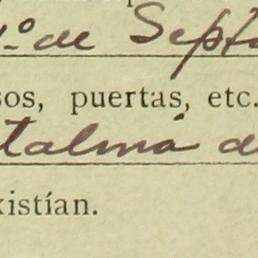 1.º de Sept
sos, puertas, etc.
talma d
xistían.